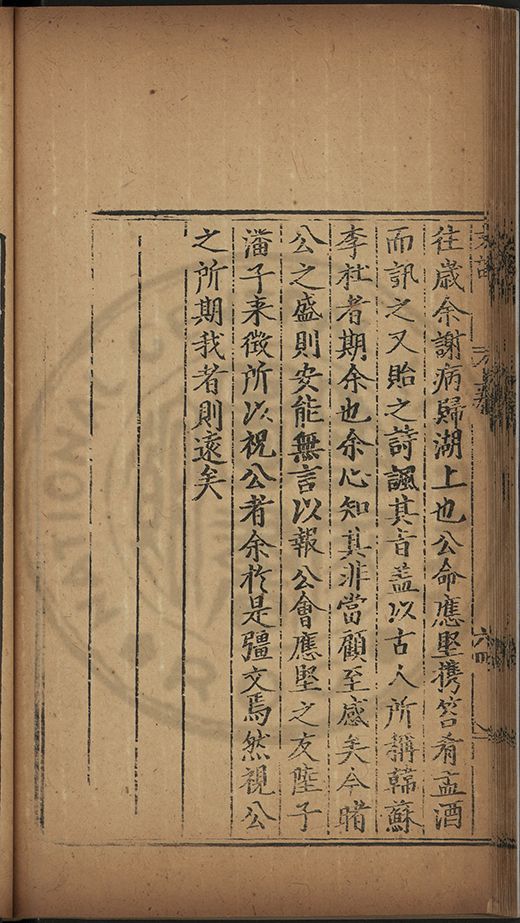 往歲余謝病歸湖上也公命應堅携筥肴盂酒
而訊之又貽之詩諷其音盖以古人所稱韓蘇
李杜者期余也余心知其非當顧至感矣今睹
公之盛則安能無言以報公會應堅之友陸子
潘子来徵所以祝公者余於是彊文焉然視公
之所期我者則遠矣